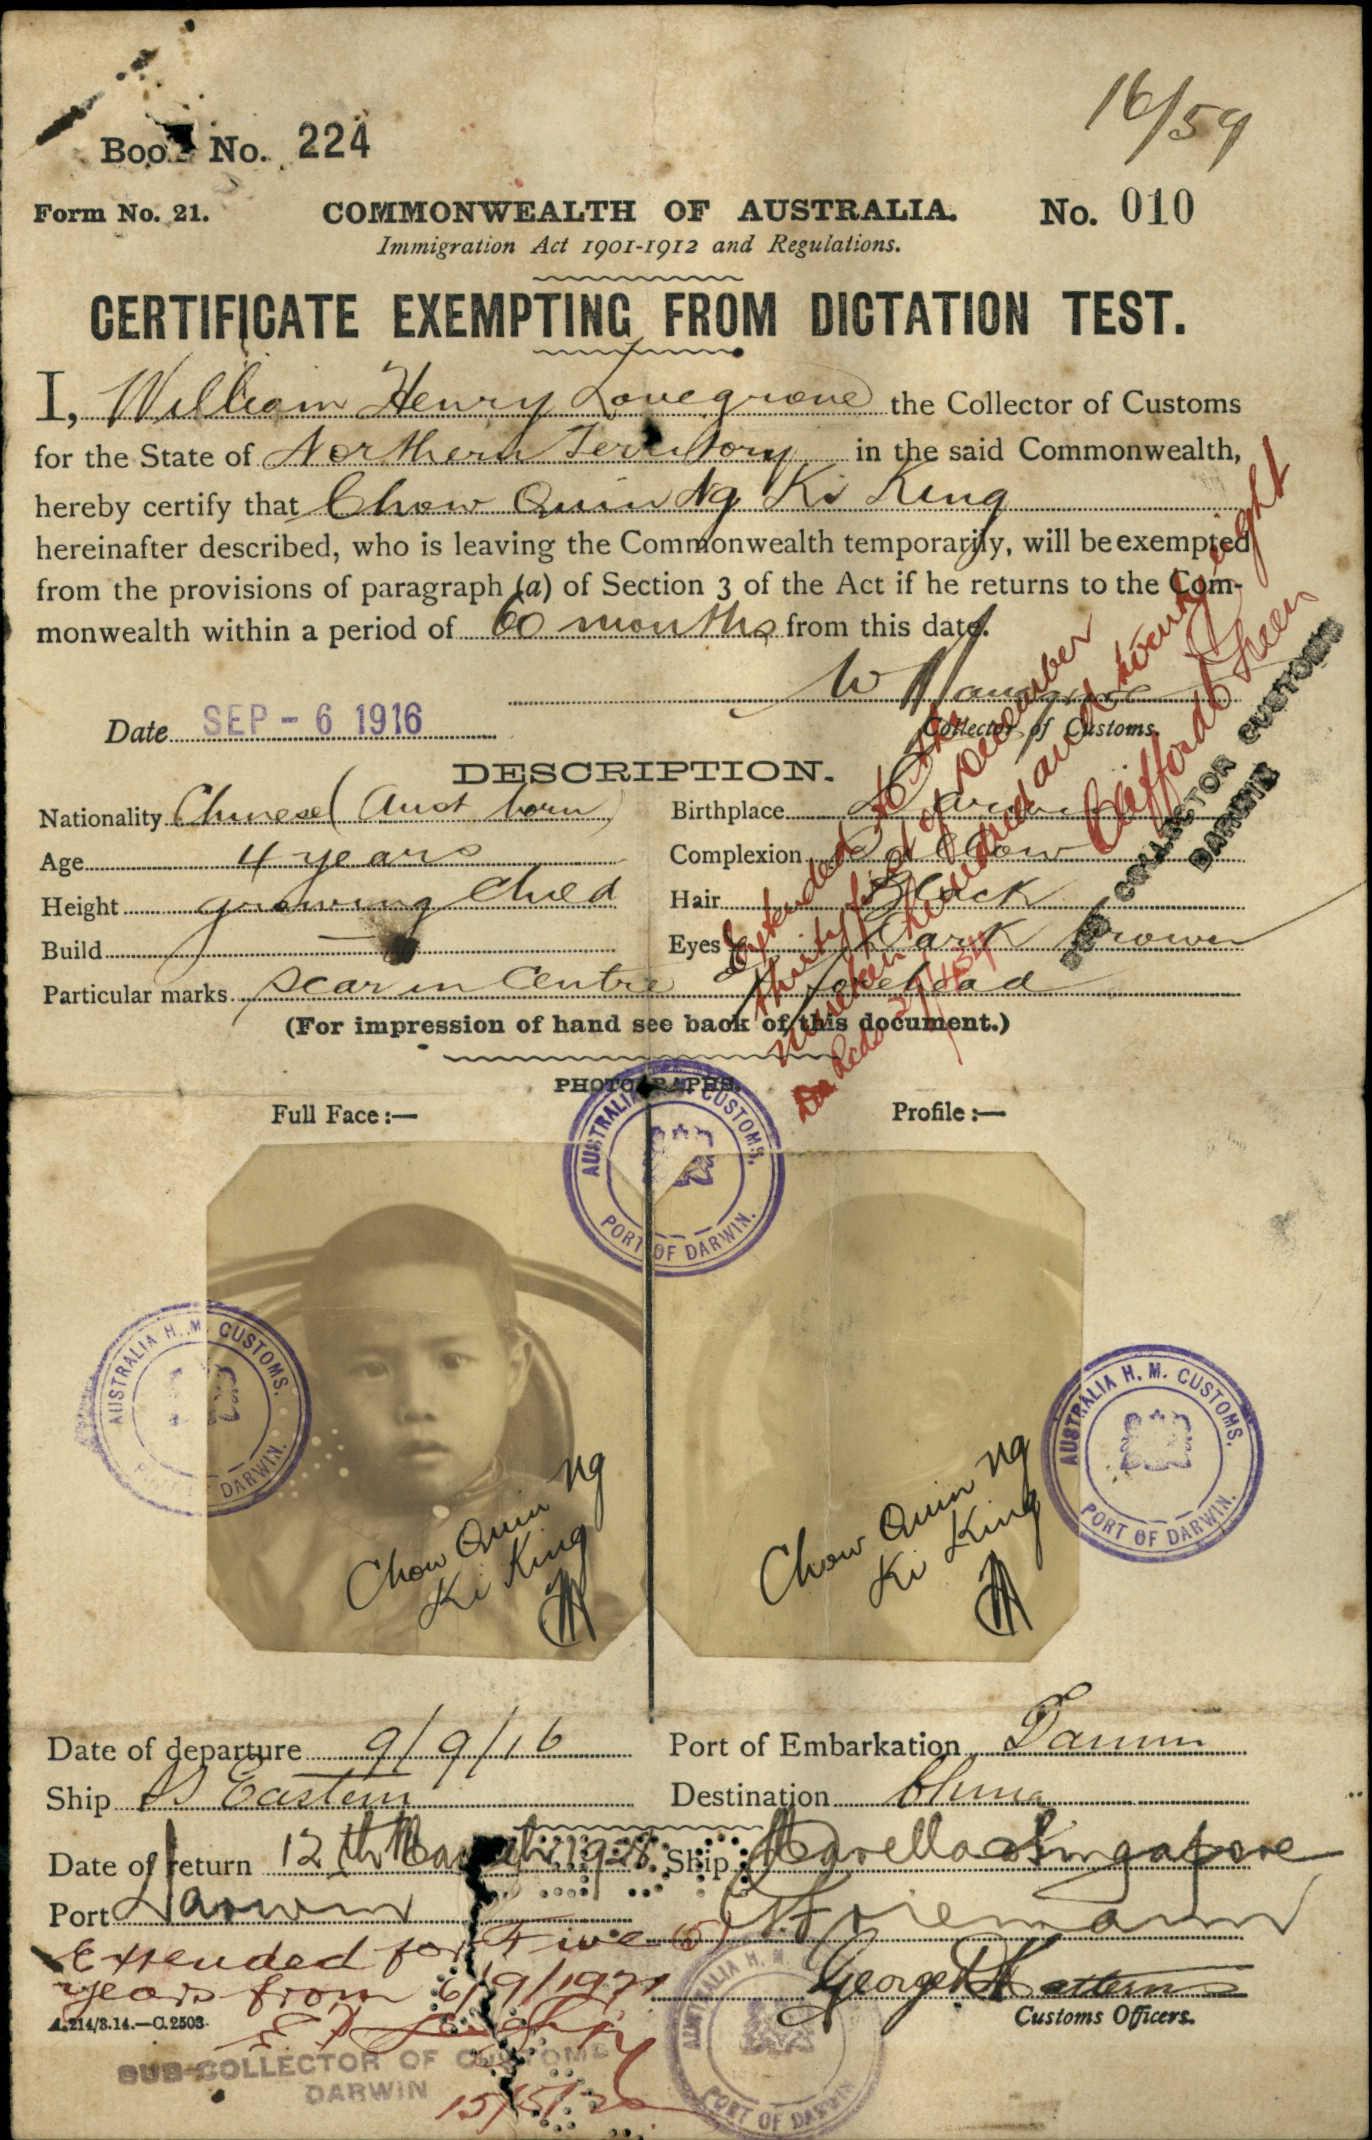 16/59
Book No. 224
Form No. 21. COMMONWEALTH OF AUSTRALIA. No. 010
Immigration Act 1901-1912 and Regulations.
CERTIFICATE EXEMPTING FROM DICTATION TEST.
I, William Henry Lovegrove the Collector of Customs
for the State of Northern Territory in the said Commonwealth,
hereby certify that Chow Quin Ng Ki King
hereinafter described, who is leaving the Commonwealth temporarily, will be exempted
from the provisions of paragraph (a) of Section 3 of the Act if he returns to the Com-
monwealth within a period of 60 months from this date.
W H Lovegrove
Date SEP - 6 1916 Collector of Customs.
Extended to the
thirty first of December
nineteen hundred and twenty eight
Clifford B Sheen
SUB COLLECTOR CUSTOMS
DARWIN
DESCRIPTION.
Nationality Chinese (Aust born) Birthplace Darwin
Age 4 years Complexion Sallow
Height growing child Hair Black
Build — Eyes Dark brown
Particular marks scar in centre of forehead
(For impression of hand see back of this document.)
PHOTOGRAPHS.
Full Face :— Profile :—
AUSTRALIA H. M. CUSTOMS.
PORT OF DARWIN.
AUSTRALIA H. M. CUSTOMS.
PORT OF DARWIN.
AUSTRALIA H. M. CUSTOMS.
PORT OF DARWIN.
Chow Quin Ng
Ki King
Chow Quin Ng
Ki King
Date of departure 9/9/16 Port of Embarkation Darwin
Ship SS Eastern Destination China
Date of return 12th March 1928 Ship Marella Singapore
Port Darwin
Extended for Five (5)
years from 6/9/1921
George
Customs Officers.
A.214/3.14.—C.2503.
SUB-COLLECTOR OF CUSTOMS
DARWIN
AUSTRALIA H. M.
PORT OF DARWIN